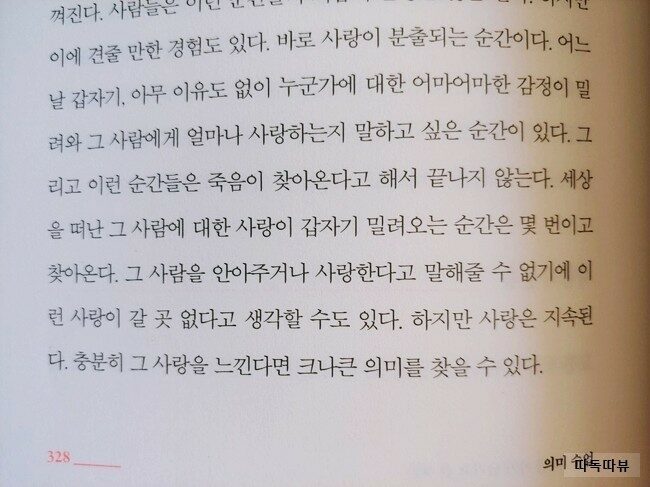 껴진다. 사람들은 이런 순간을
이에 견줄 만한 경험도 있다. 바로 사랑이 분출되는 순간이다. 어느
날 갑자기, 아무 이유도 없이 누군가에 대한 어마어마한 감정이 밀
려와 그 사람에게 얼마나 사랑하는지 말하고 싶은 순간이 있다. 그
리고 이런 순간들은 죽음이 찾아온다고 해서 끝나지 않는다. 세상
을 떠난 그 사람에 대한 사랑이 갑자기 밀려오는 순간은 몇 번이고
찾아온다. 그 사람을 안아주거나 사랑한다고 말해줄 수 없기에 이
런 사랑이 갈 곳 없다고 생각할 수도 있다. 하지만 사랑은 지속된
다. 충분히 그 사랑을 느낀다면 크나큰 의미를 찾을 수 있다.
328
의미 수업
따독따뷰